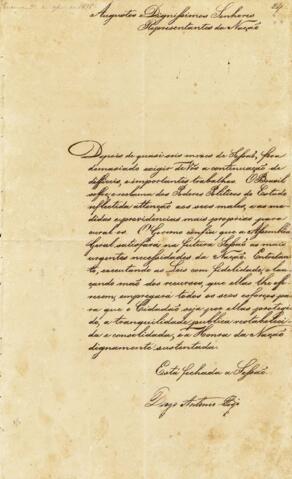 Augustos e Dignissimos Senhores
Representantes da Nação
Depois de quasi seis mezes de Sessaõ, fora
demasiado exigir de Vós a continuação de
difficeis, e importantes trabalhos. O Brasil
soffre, e reclama dos Poderes Politicos do Estado
reflectida attenção aos seos males, e as me
didas e providencias mais proprias para
cural-os. O Governo confia que a Assemblea
Geral satisfará na futura Sessaõ as mais
urgentes necessidades da Nação. Entretan
to, executando as Leis com fidelidade, e lan
çando maõ dos recursos, que ellas lhe offe
recem, empregará todos os seos esforços pa
ra que o Cidadaõ seja por ellas protegi
do, a tranquilidade publica restabeleci
da e consolidada, e a Honra da Nação
dignamente sustentada.
Está fechada a Sessaõ.
Diogo Antonio Feijó